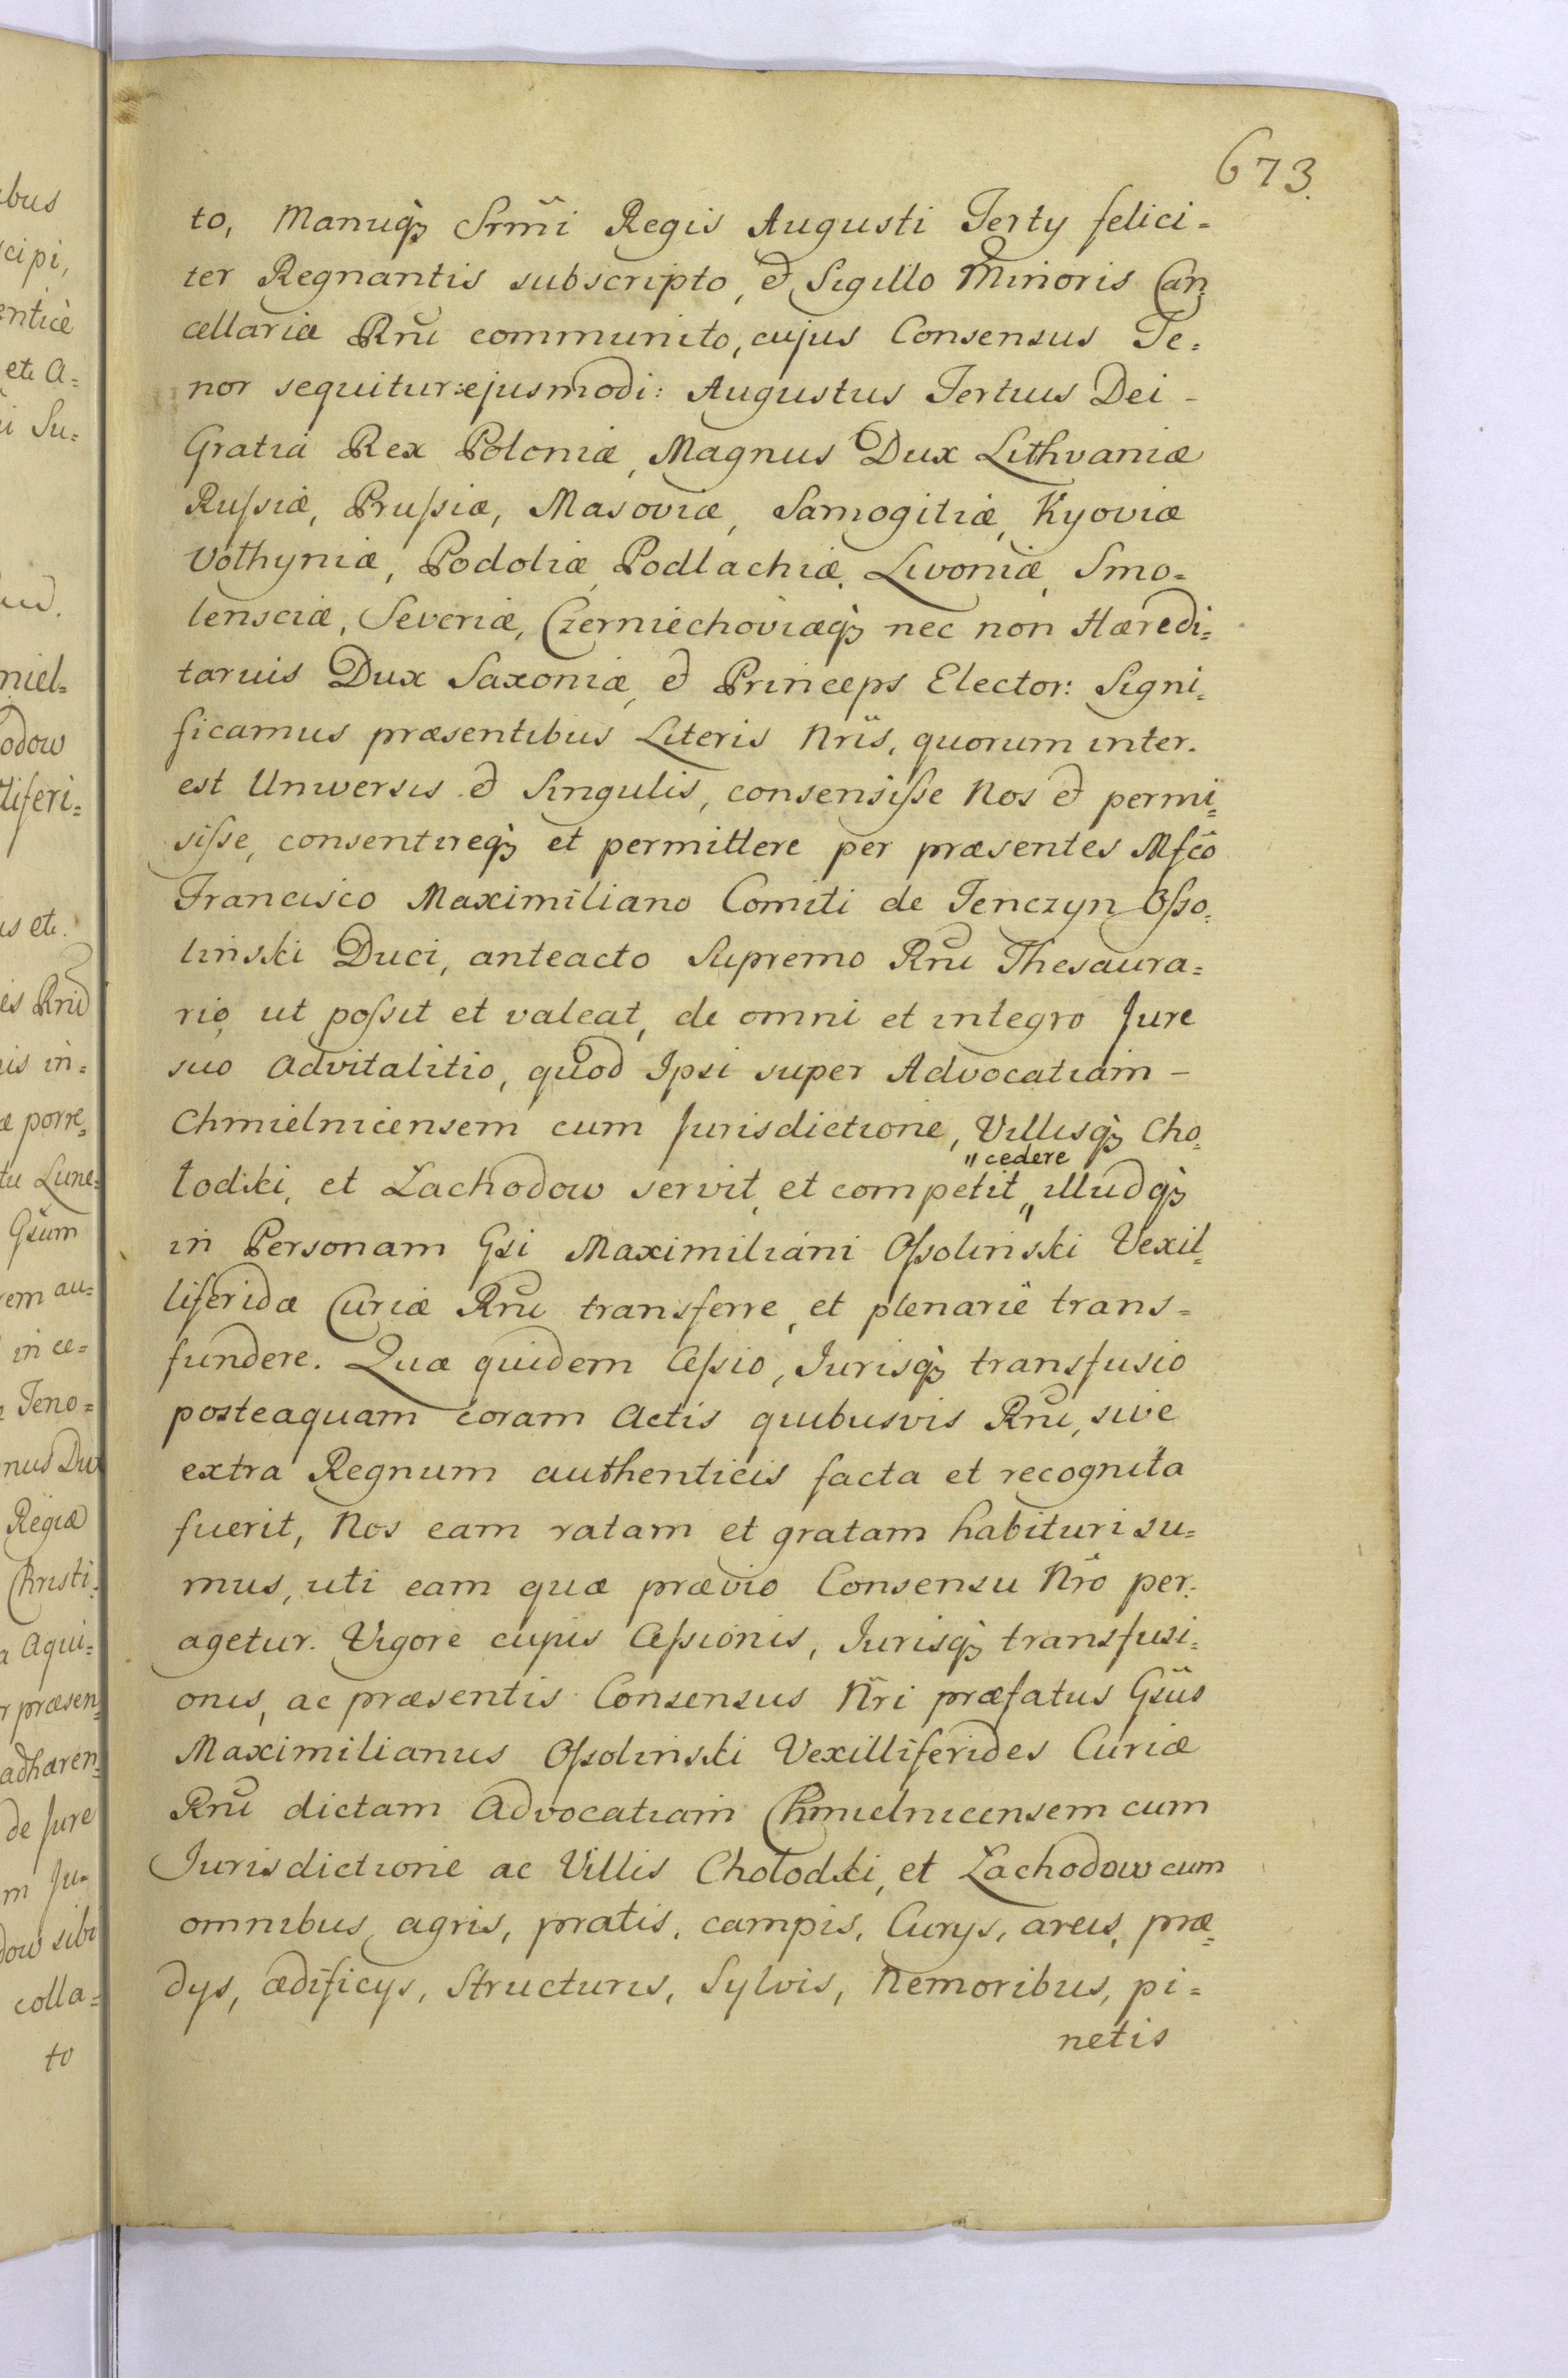 673.
to, Manuq́ꝫ Srm̃i Regis Augusti Tertÿ felici=
ter Regnantis subscripto, et Sigillo Minoris Can=
cellariæ Rñi communito, cujus Consensus Te=
nor sequitur ejusmodi: Augustus Tertius Dei -
Gratia Rex Poloniæ, Magnus Dux Lithvaniæ
Rußiæ, Prußiæ, Masoviæ, Samogitiæ, Kyoviæ
Vołhyniæ, Podoliæ, Podlachiæ, Livoniæ, Smo=
lensciæ, Severiæ, Czerniechoviæq́ꝫ nec non Hæredi=
tarius Dux Saxoniæ, et Princeps Elector: Signi=
ficamus præsentibus Literis Nr̃is, quorum inter=
est Universis et Singulis, consensiſse Nos et permi=
siſse, consentireq́ꝫ et permittere per præsentes Mfc̃o
Francisco Maximiliano Comiti de Tenczyn Oſso=
linski Duci, anteacto Supremo Rñi Thesaura=
rio, ut poſsit et valeat, de omni et integro Jure
suo Advitalitio, quod Ipsi super Advocatiam -
Chmielnicensem cum Jurisdictione, Villisq́ꝫ Cho=
" cedere
łodki, et Lachodow servit, et competit " illudq́ꝫ
in Personam Gsi Maximiliani Oſsolinski Vexil=
liferidæ Curiæ Rñi transferre, et plenariè trans=
fundere. Quæ quidem Ceſsio, Jurisq́ꝫ transfusio
posteaquam coram Actis quibusvis Rñi, sive
extra Regnum authenticis facta et recognita
fuerit, Nos eam ratam et gratam habituri su=
mus, uti eam quæ prævio Consensu Nr̃o per=
agetur. Vigore cujus Ceſsionis, Jurisq́ꝫ transfusi=
onis, ac præsentis Consensus Nr̃i præfatus Gs̃us
Maximilianus Oſsolinski Vexilliferides Curiæ
Rñi dictam Advocatiam Chmielnicensem cum
Jurisdictione ac Villis Chołodki, et Lachodow cum
omnibus, agris, pratis, campis, Curÿs, areis, præ=
dÿs, ædificÿs, Structuris, Sylvis, Nemoribus, pi=
netis